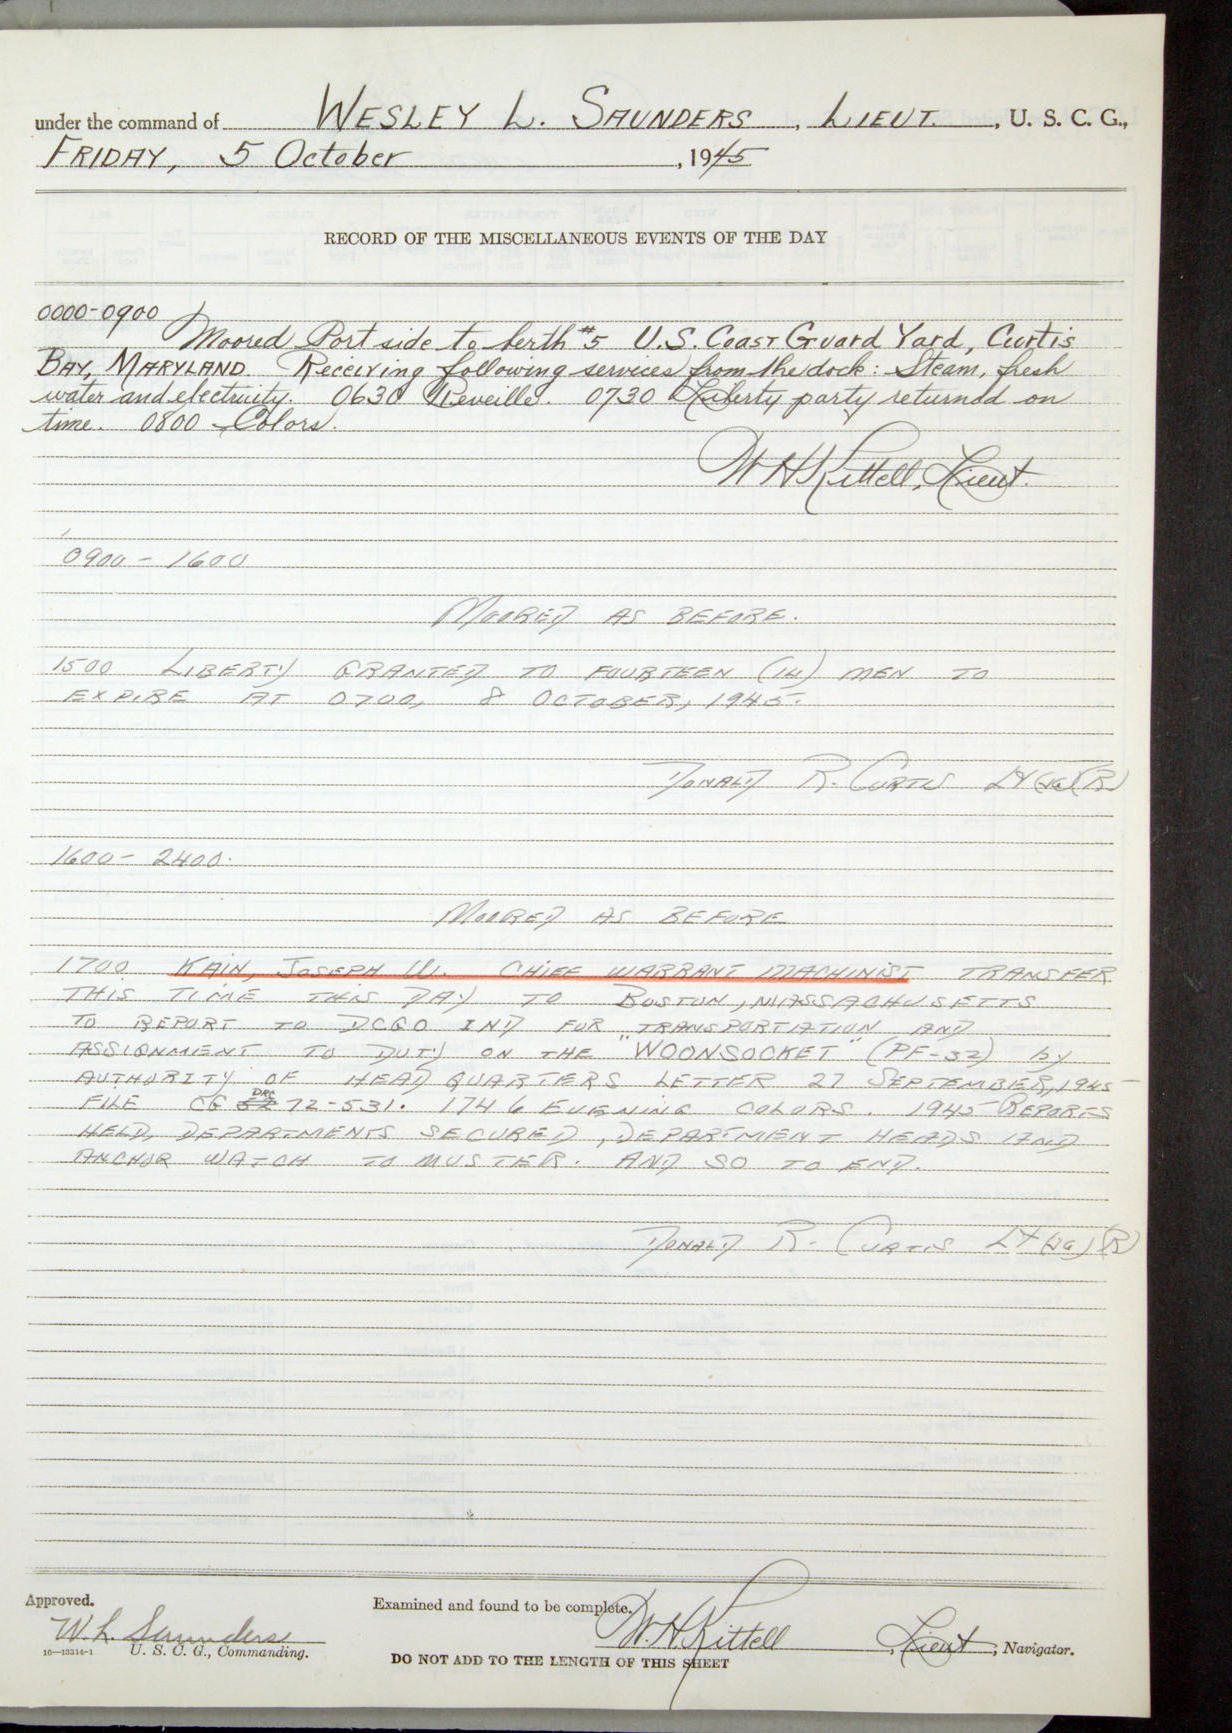 under the command of WESLEY L. SAUNDERS, LIEUT., U. S. C. G.,
FRIDAY, 5 October, 1945
RECORD OF THE MISCELLANEOUS EVENTS OF THE DAY
0000-0900
Moored Port side to berth #5 U.S. Coast Guard Yard, Curtis
BAY, MARYLAND. Receiving following services from the dock: Steam, fresh
water and electricity. 0630 Reveille. 0730 Liberty party returned on
time. 0800 Colors.
W H Kittell, Lieut.
0900 - 1600
MOORED AS BEFORE.
1500 LIBERTY GRANTED TO FOURTEEN (14) MEN TO
EXPIRE AT 0700, 8 OCTOBER, 1945.
DONALD R. CURTIS LT (JG) (R)
1600 - 2400.
MOORED AS BEFORE
1700 KAIN, JOSEPH W. CHIEF WARRANT MACHINIST TRANSFER
THIS TIME THIS DAY TO BOSTON, MASSACHUSETTS
TO REPORT TO DCGO 1ND FOR TRANSPORTATION AND
ASSIGNMENT TO DUTY ON THE "WOONSOCKET" (PF-32) by
AUTHORITY OF HEADQUARTERS LETTER 27 SEPTEMBER, 1945
DRC
FILE CG 72-531. 1746 EVENING COLORS. 1945 REPORTS
HELD, DEPARTMENTS SECURED, DEPARTMENT HEADS AND
ANCHOR WATCH TO MUSTER. AND SO TO END.
DONALD R. CURTIS LT (JG) (R)
Approved.
W. L. Saunders
16-13314-1 U. S. C. G., Commanding.
Examined and found to be complete.
W. H. Kittell, Lieut, Navigator.
DO NOT ADD TO THE LENGTH OF THIS SHEET